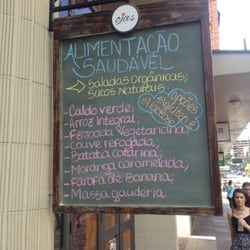 ojas
ALIMENTAÇÃO
SAUDÁVEL
Saladas Orgânicas;
Sucos Naturais
opções
- Caldo verde;
- Arroz Integral;
- Feijoada Vegetariana;
- Couve refogada;
- Batata
- Moranga caramelada;
- Farofa de Banana;
- Massa gaudéria